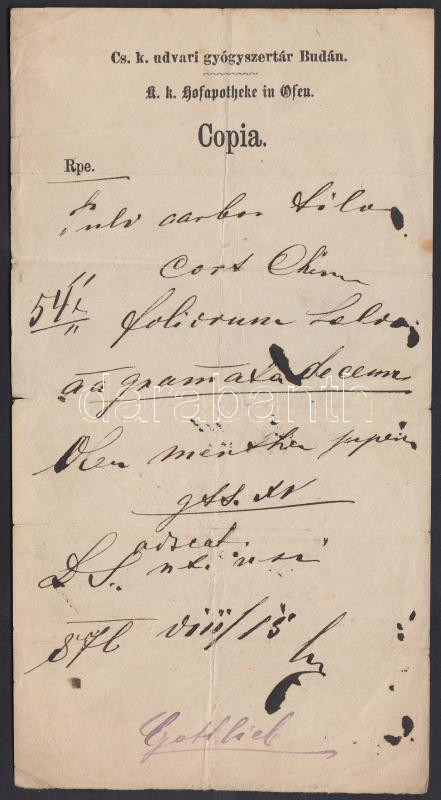 Cs. k. udvari gyógyszertár Budán.
K. k. Hofapotheke in Ofen.
Copia.
Rpe.
Pulv carbon tilae
cort Chin
54
foliorum Salviae
aa gramata decem
Olei menthae piper
gtt. XV
adscat.
D S. usui
876 VIII/15
Gottlieb
darabanth